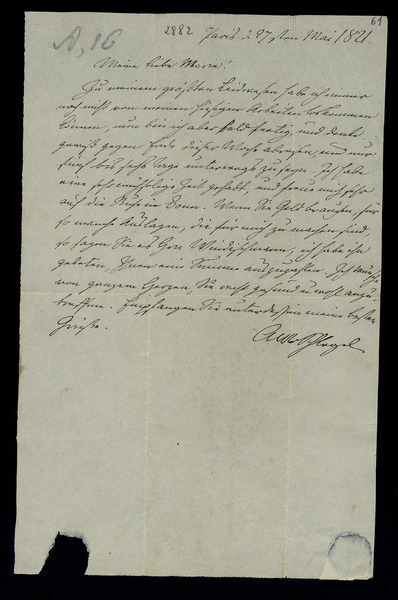 61
A, 16
2882
Paris d. 27sten Mai 1821.
Meine liebe Marie!
Zu meinem größten Leidwesen habe ich immer
noch nicht von meinen hiesigen Arbeiten loskommen
können, nun bin ich aber bald fertig, und denke
gewiß gegen Ende dieser Woche abzureisen, und nur
fünf bis sechs Tage unterwegs zu seyn. Ich habe
eine sehr mühselige Zeit gehabt, und freue mich sehr
auf die Ruhe in Bonn. Wenn Sie Geld brauchen, für
so manche Auslagen, die für mich zu machen sind
so sagen Sie es Hrn. Windischmann, ich habe ihn
gebeten, Ihnen eine Summe auszuzahlen. Ich wünsche
von ganzem Herzen, Sie recht gesund u wohl anzu-
treffen. Empfangen Sie unterdessen meine besten
Grüße.
AWvSchlegel